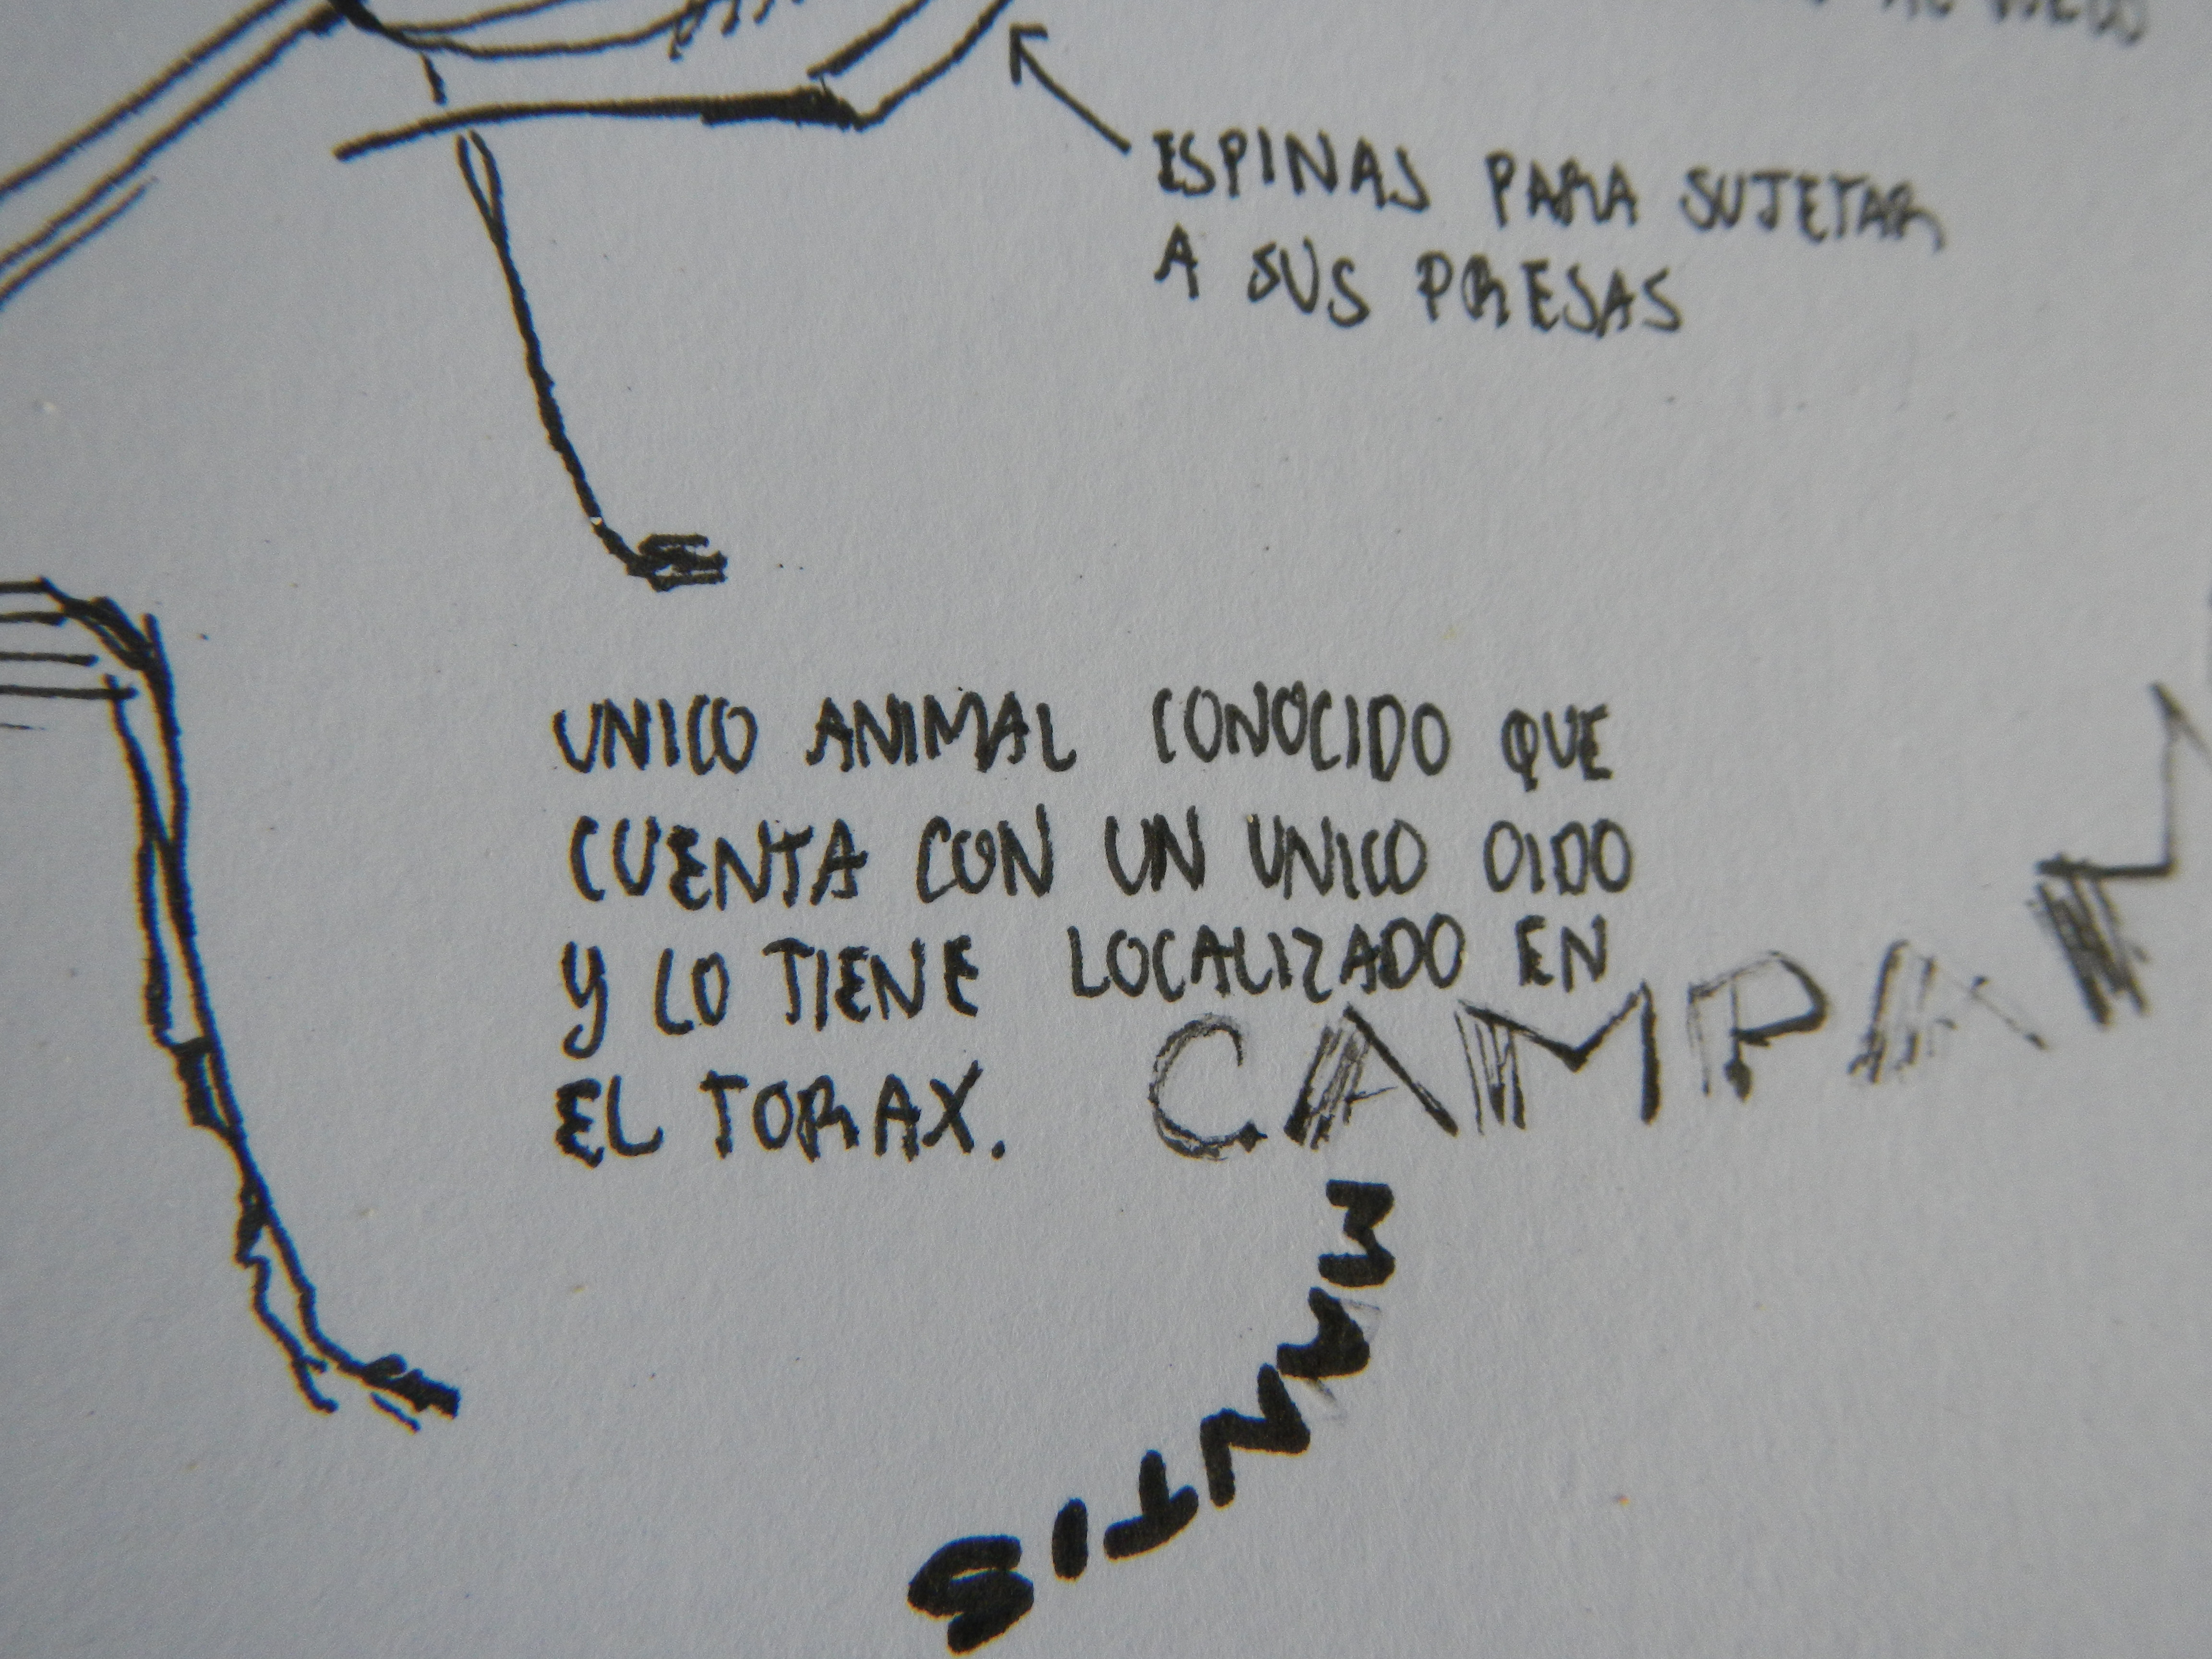 ESPINAS PARA SUJETAR
A SUS PRESAS
UNICO ANIMAL CONOCIDO QUE
CUENTA CON UN UNICO OIDO
Y LO TIENE LOCALIZADO EN
EL TORAX.
CAMPAM
MANTIS